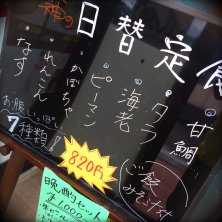 神の
日替定食
甘鯛
タラ
海老
ピーマン
かぼちゃ
れんこん
なす
お腹いっぱい
7種類
ご飯
みそ汁付
820円
晩酌セット
¥1,000